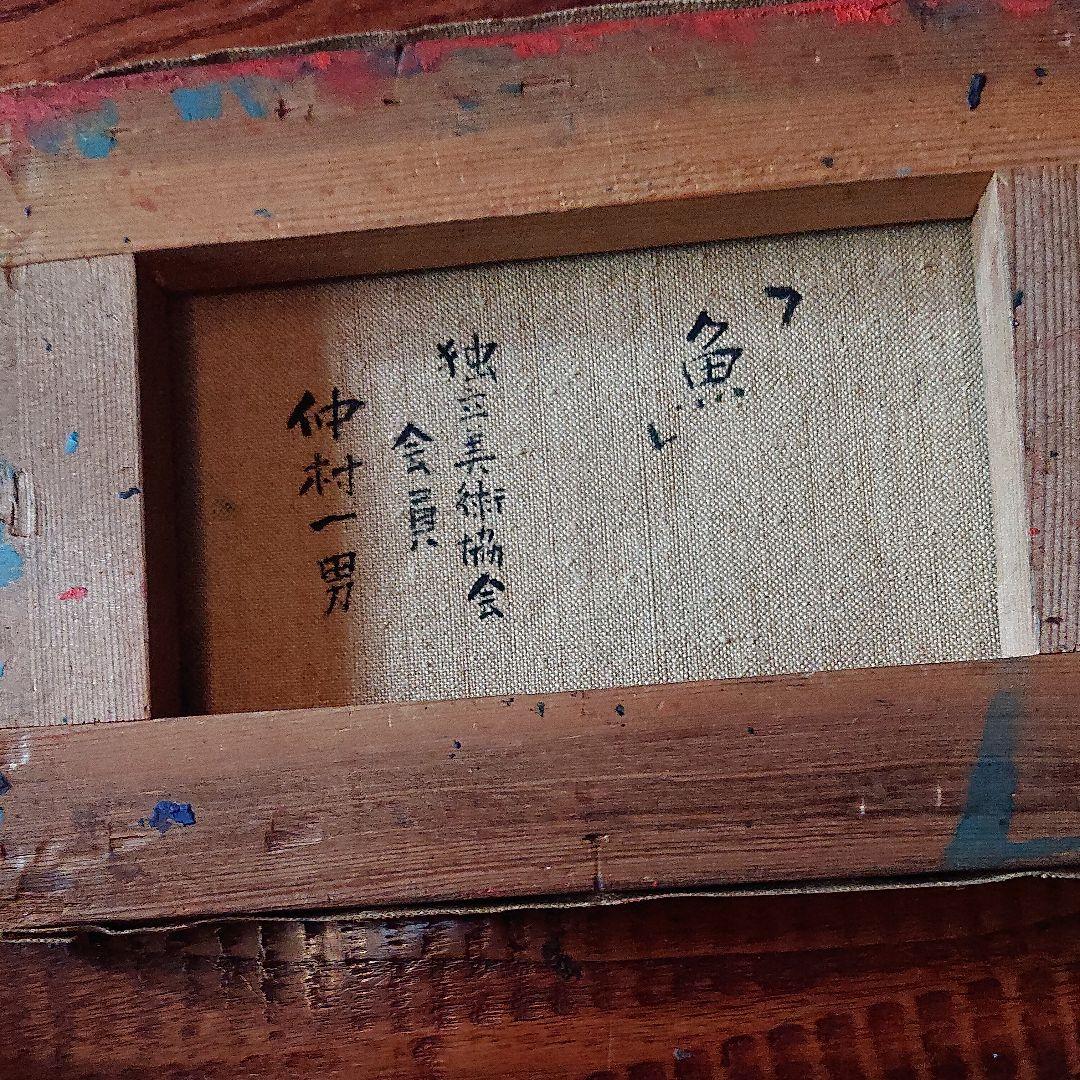 「魚」
独立美術協会
会員
仲村一男